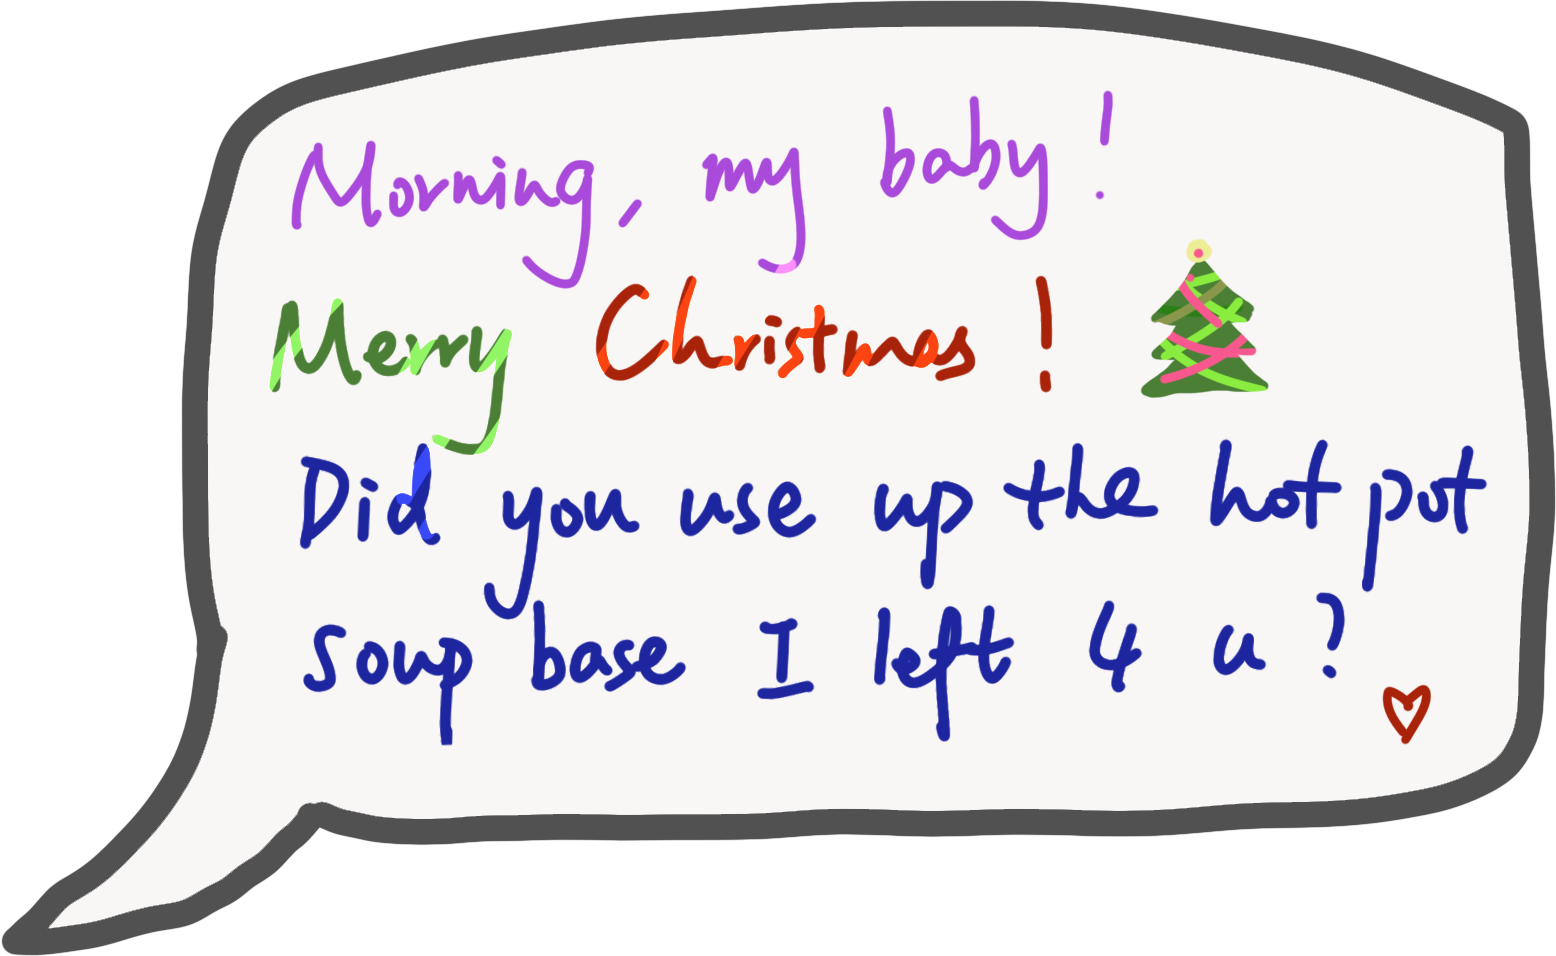 Morning, my baby!
Merry Christmas!
Did you use up the hot pot
soup base I left 4 u?